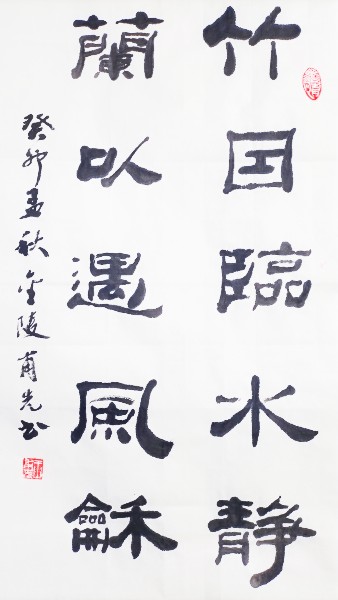 竹因臨水靜
蘭以遇風龢
癸卯孟秋金陵甫先书